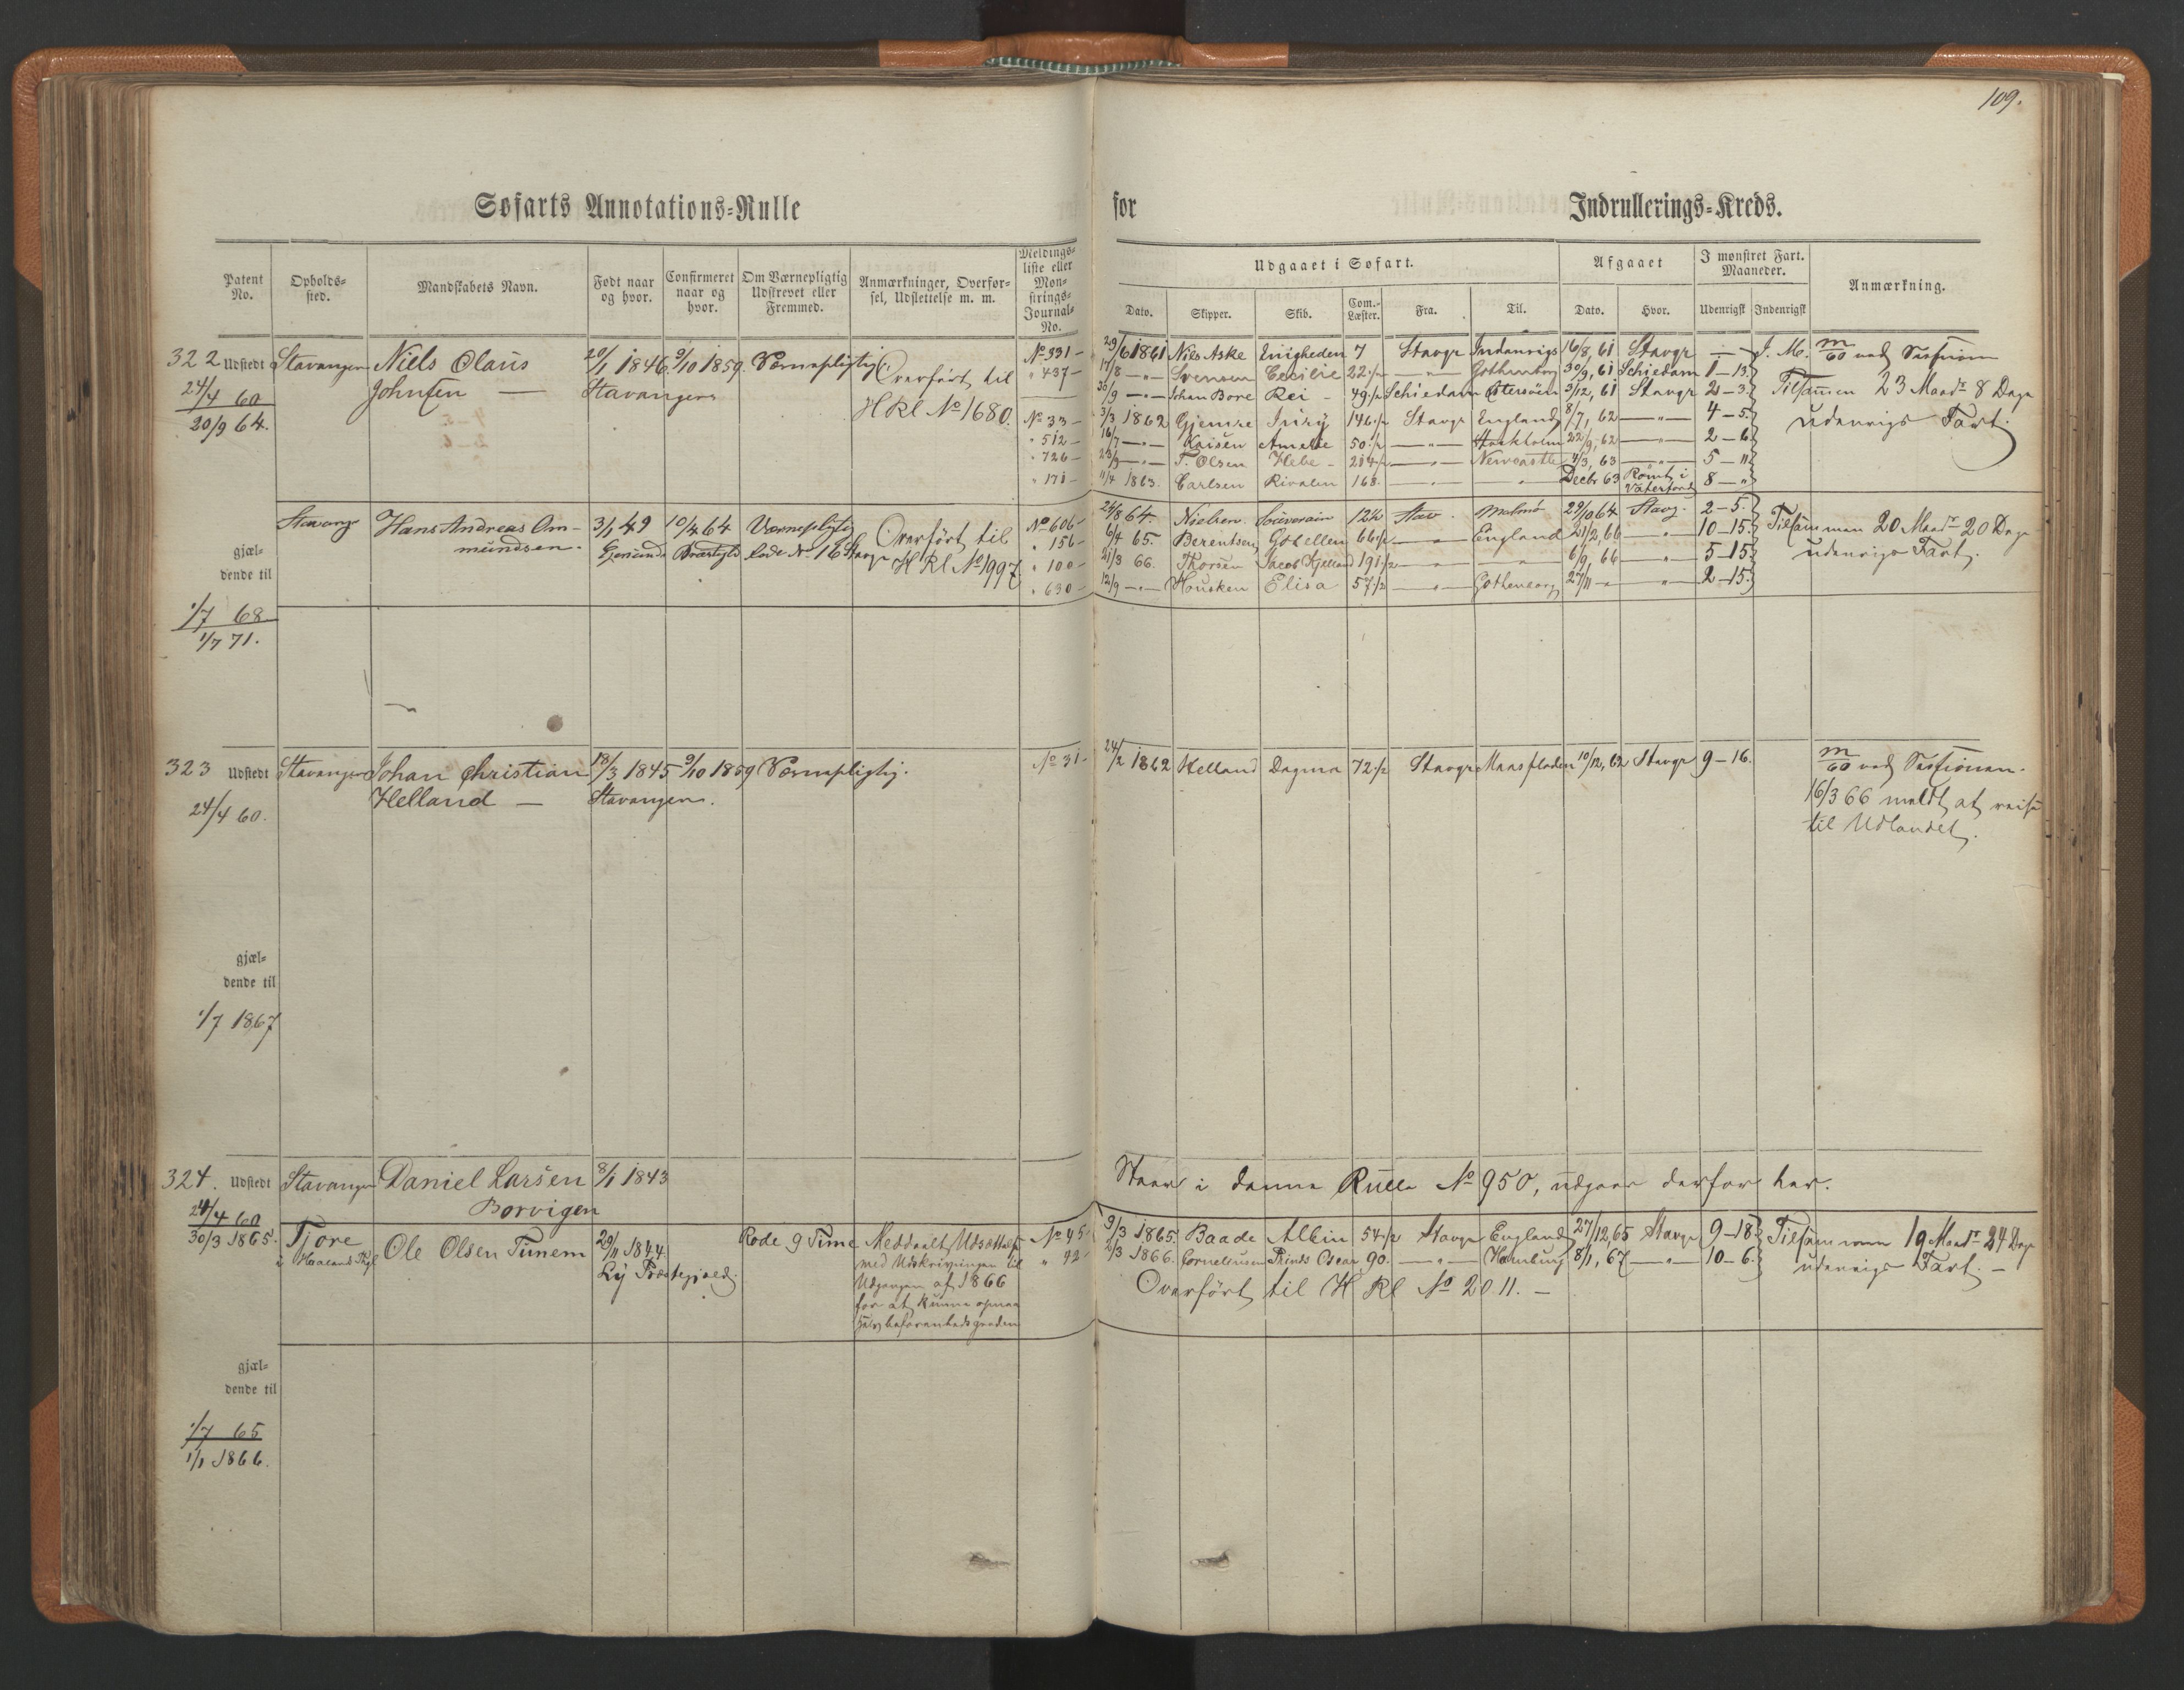 109.
Søfarts Annotations-Rulle
for
Indrullerings-Kreds.
Patent No.
Opholds-sted.
Mandskabets Navn.
Født naar og hvor.
Confirmeret naar og hvor.
Om Værnepligtig Udskrevet eller Fremmed.
Anmærkninger, Overførsel, Udslettelse m. m.
Meldings-liste eller Mønstrings-Journal-No.
Udgaaet i Søfart.
Afgaaet
I mønstret Fart. Maaneder.
Anmærkning.
Dato.
Skipper.
Skib.
Com.-Læster.
Fra.
Til.
Dato.
Hvor.
Udenrigsk
Indenrigsk
322 Udstedt Stavanger Niels Olaus 20/1 1846 9/10 1859 Værnepligtig.
24/4 60 Johnsen — Stavanger Overført til
20/9 64. H Rl No 1680.
No 331 - 29/6 1861 Niels Aske Enigheden 7 Stavgr Indenrigs 16/8, 61 Stavgr
" 437 - 17/8 — " — Svensen Cecilie 22 1/2 — " — Gothenborg 30/9, 61 Schiedam 1 - 13.
26/9 — " — Johan Bore Rei - 49 1/2 Schiedam Østersöen 3/12, 61 Stavgr 2 - 3.
No 33 - 3/3 1862 Gjemre Juno 146 1/2 Stavgr England 8/7, 62 — " — 4 - 5.
" 512 - 16/7 — " — Kaisen Amelie 50 1/2 — " — Stockholm 22/9, 62 — " — 2 - 6
" 726 - 23/9 — " — T. Olsen Hebe - 214 1/2 — " — Newcastle 4/3, 63 — " — 5 - "
" 171 - 11/4 1863. Carlsen Rivalen 168. — " — " Decbr 63 Römt i Vaterford 8 - "
J. M. m/60 ved Sessionen
Tilsammen 23 Maadr 8 Dage
udenrigs Fart.
Stavangr Hans Andreas Om- 3/1 49 10/4 64 Værnepligtig Overført til
mundsen. Egersund Præstgd Rode No 16 Stavgr H Rl No 1997
gjæl-
dende til
1/7 68
1/7 71.
No 606 - 24/8 64. Nielsen. Souverain 124 Stav. Malmö 29/10 64 Stavg. 2 - 5.
" 156 - 6/4 65. Berentsen Gobellen 66 1/2 — " — England 21/2, 66 — " — 10 - 15.
" 100 - 21/3 66. Thorsen Jacob Kjelland 191 1/2 — " — — " — 6/9, 66 — " — 5 - 15
" 630 - 12/9 — " — Housken Elisa 57 1/2 — " — Gothenborg 27/11 - " — " — 2 - 15.
Tilsammen 20 Maadr 20 Dage
udenrigs Fart.
323 Udstedt Stavanger Johan Christian 13/3 1845 9/10 1859 Værnepligtig.
24/4 60. Helland — Stavanger.
No 31 - 24/2 1862 Helland Dagma 72 1/2 Stavgr Maasfloden 10/12, 62 Stavgr 9 - 16.
m/60 ved Sessionen.
16/3 66 meldt at reise
til Udlandet.
gjæl-
dende til
1/7 1867
324. Udstedt Stavanger Daniel Larsen 8/1 1843
24/4 60 Borvigen
Staar i denne Rulle No 950, udgaar derfor her.
30/3 1865. Tjore Ole Olsen Tunem 29/11 1844. Rode 9 Time Meddeelt Udsættelse
i Haaland Pgl Ly Præstegjæld. med Udskrivningen til
Udgangen af 1866
for at kunne opnaa
Halvbefarenhedsgraden
No 45 - 9/3 1865. Baade Albin 54 1/2 Stavgr England 27/12, 65 Stavgr 9 - 18
" 92 - 2/3 1866. Corneliusen Prinds Oscar 90. — " — Hamburg 8/1, 67 — " — 10 - 6.
Tilsammen 19 Maadr 24 Dage
udenrigs Fart. —
Overført til H Rl No 2011. —
gjæl-
dende til
1/7 65
1/1 1866.